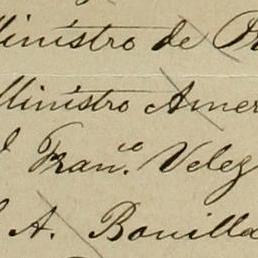 Ministro de
Ministro Amer
Fran.co Velez
A. Bonilla